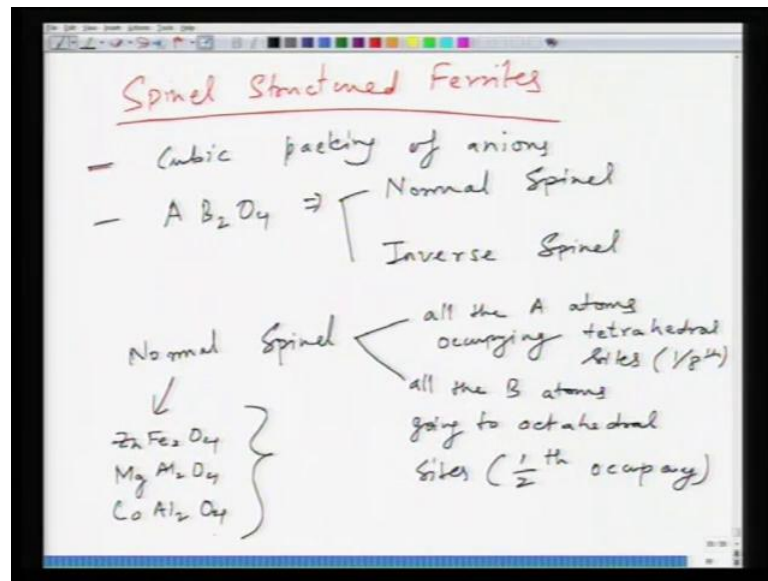 Spinel Structured Ferrites
- Cubic packing of anions
- A B2 O4 ⇒ Normal Spinel
Inverse Spinel
Normal Spinel
all the A atoms
occupying tetrahedral
sites (1/8th)
all the B atoms
going to octahedral
sites (1/2 th occupay)
ZnFe2O4
MgAl2O4
CoAl2O4